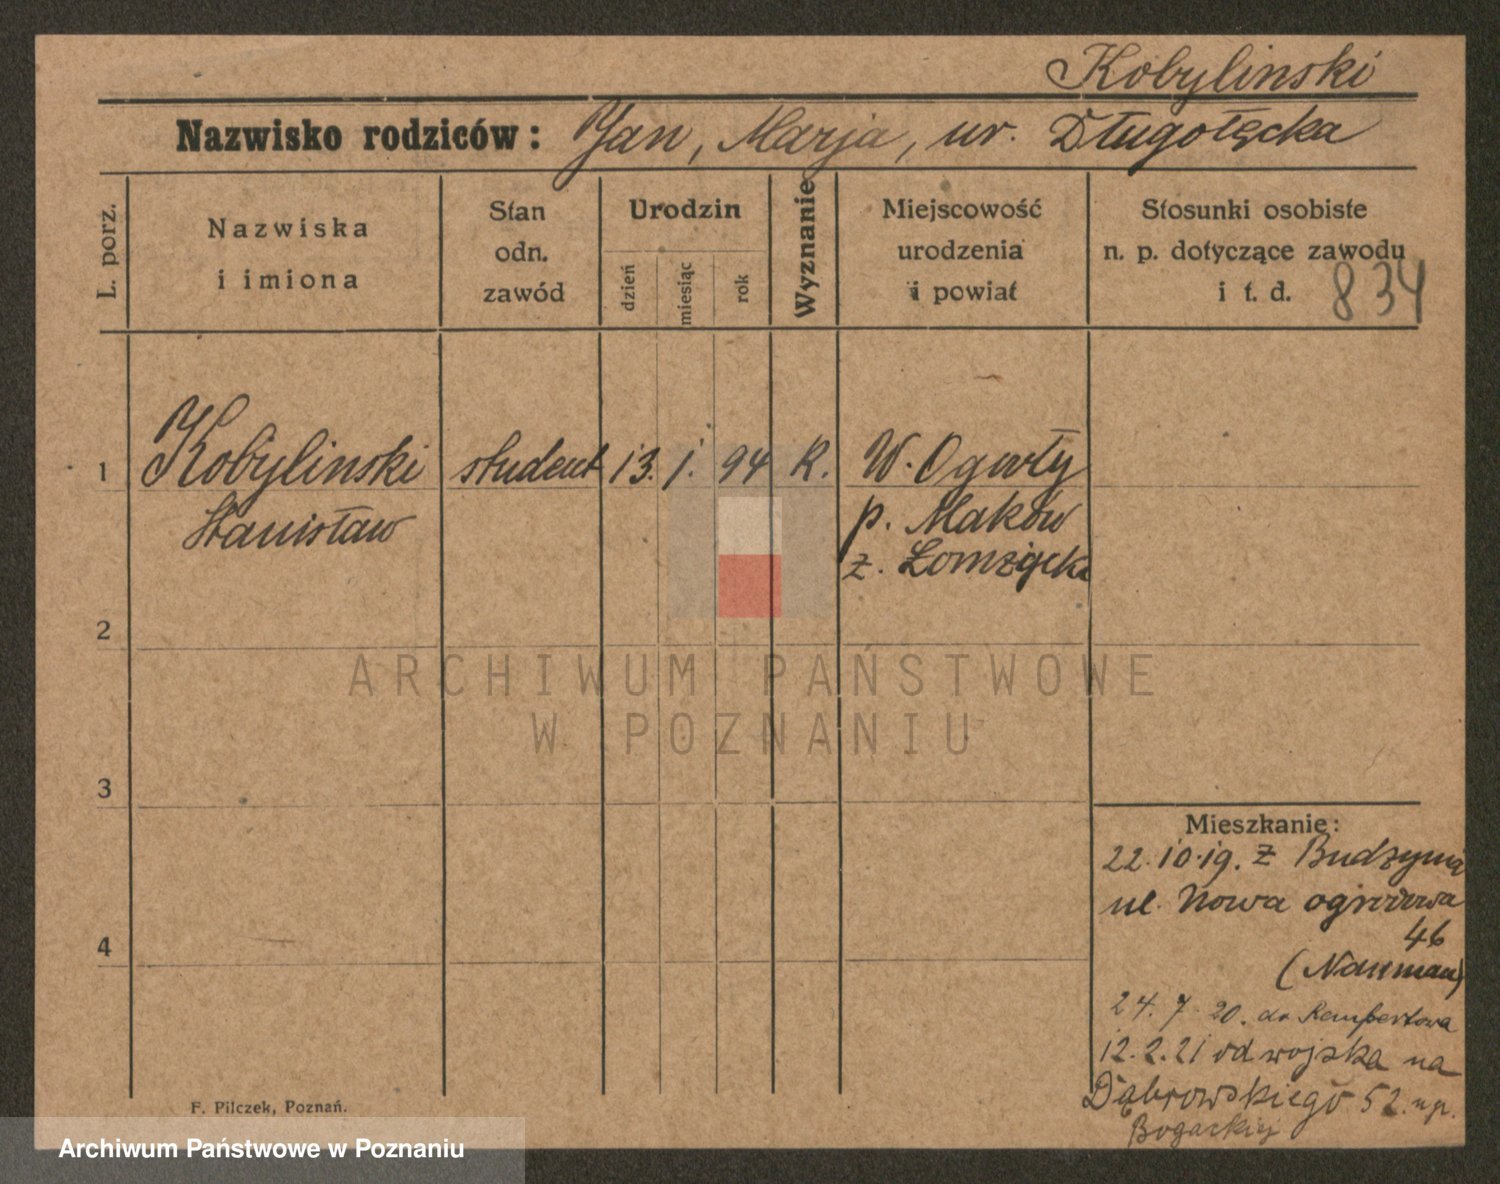 Kobylinski
Nazwisko rodziców: Jan, Marja, ur. Długołęcka
L. porz.
Nazwiska
i imiona
Stan
odn.
zawód
Urodzin
dzień
miesiąc
rok
Wyznanie
Miejscowość
urodzenia
i powiat
Stosunki osobiste
n. p. dotyczące zawodu
i t. d.
834
1 Kobylinski student 13. 1. 94 R. W.
Stanisław
p. Maków
z.
2
ARCHIWUM PAŃSTWOWE
W POZNANIU
3
Mieszkanie:
22.10.19. z Budzynia
ul. Nowa ogrodowa
46
(Nauman)
4
24. 7. 20. do Rempertowa
12.2.21 od wojska na
Dąbrowskiego 52. u p.
F. Pilczek, Poznań.
Archiwum Państwowe w Poznaniu